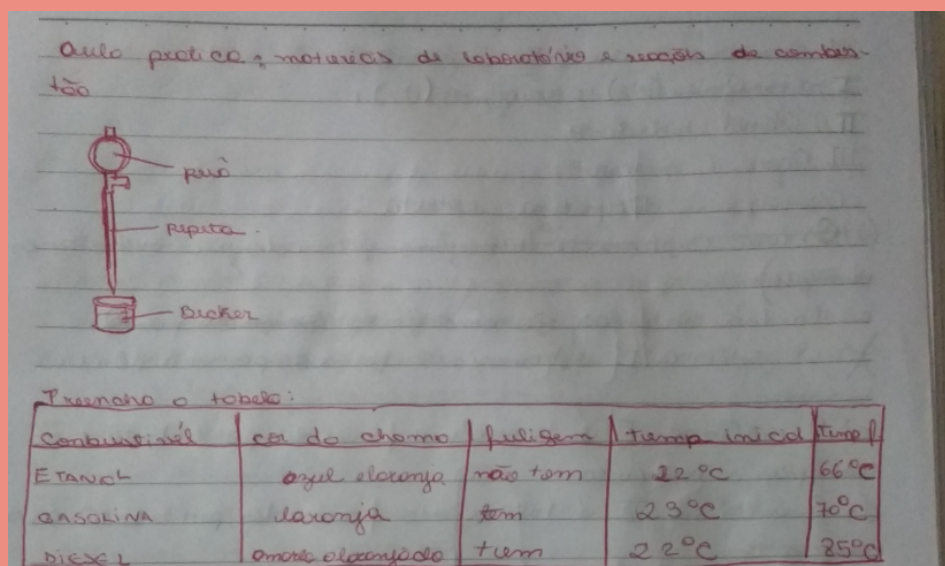 Aula pratica: materias de laboratório e reações de combus-
tão
pipeta
Becker
Preencha a tabela:
Combustivél cor da chama fuligem temp inicial temp f
ETANOL azul alaranja não tem 22°C 66°C
GASOLINA laranja tem 23°C 70°C
DIESEL amarelo alaranjado tem 22°C 85°C